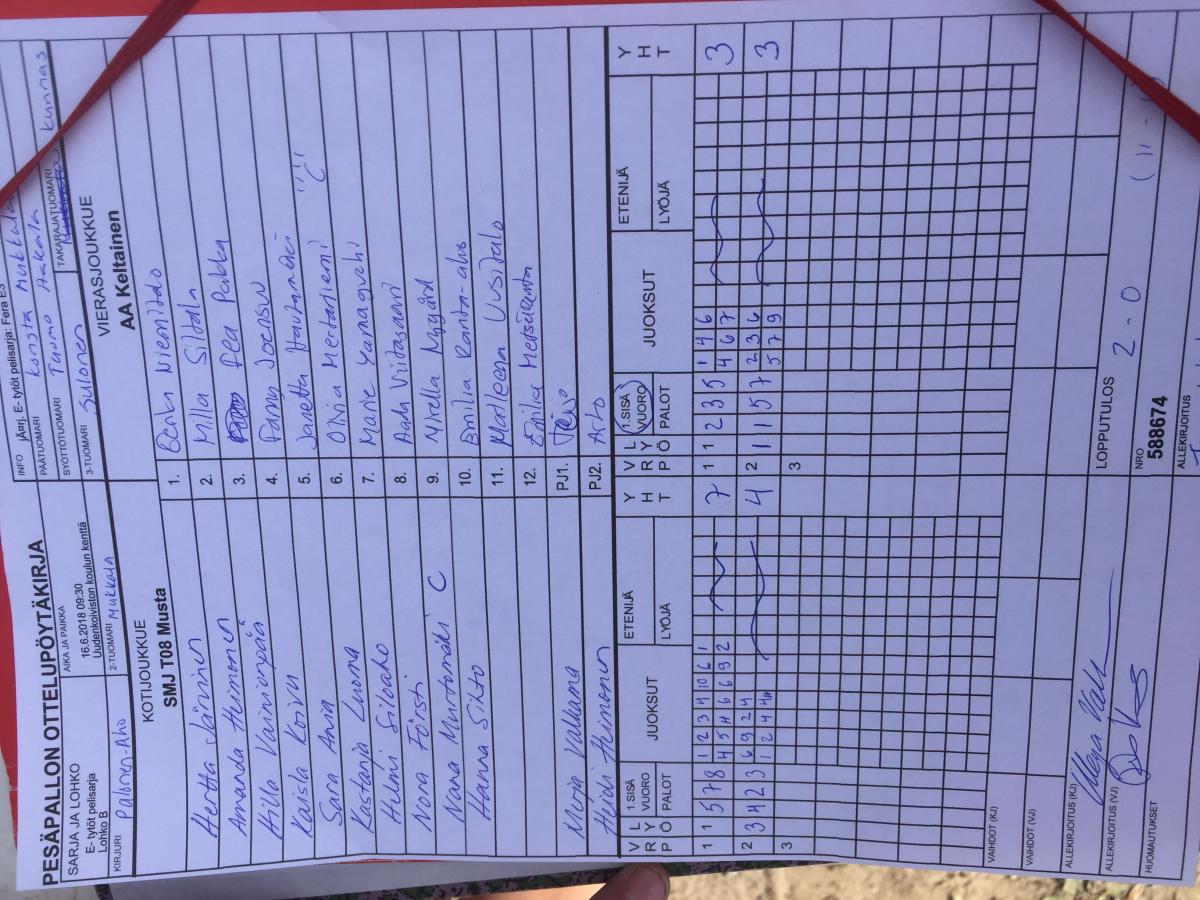 PESÄPALLON OTTELUPÖYTÄKIRJA
SARJA JA LOHKO
E- tytöt pelisarja
Lohko B
AIKA JA PAIKKA
16.6.2018 09:30
Uudenkoiviston koulun kenttä
KIRJURI
Palonen-Aho
2-TUOMARI
Mukkala
INFO
jAurj. E- tytöt pelisarja: Fera E3
PÄÄTUOMARI
Konsta Mukkala
SYÖTTÖTUOMARI
Tuomo Aakala
3-TUOMARI
Sulonen
TAKARAJATUOMARI
kunnas
KOTIJOUKKUE
SMJ T08 Musta
VIERASJOUKKUE
AA Keltainen
Hertta Järvinen
1.
Eerika Niemitalo
Amanda Heimonen
2.
Milla Siltala
Hilla Vainionpää
3.
Pea Pakka
Kaisla Koivu
4.
Fanny Joensuu
Sara Anna
5.
Janette Hautamäki
Kastanja Luoma
6.
Olivia Mertaniemi C
Helmi Siloaho
7.
Marie Yamaguchi
Nora Försti
8.
Aada Viitasaari
Nana Muntomäki C
9.
Mirella Nygård
Hanna Sihto
10.
Emilia Ranta-aho
11.
Matleena Uusitalo
12.
Eerika Metsäranta
Merja Valkama
PJ1.
Teijo
Heidi Heimonen
PJ2.
Arto
V L
R Y
P Ö
1.SISÄ
VUORO
PALOT
JUOKSUT
ETENIJÄ
LYÖJÄ
Y
H
T
V L
R Y
P Ö
1.SISÄ
VUORO
PALOT
JUOKSUT
ETENIJÄ
LYÖJÄ
Y
H
T
1 1 5 7 8
1 2 3 4 10 6 1
4 5 4 6 6 9 2
7
1 1 2 3 5
1 4 6
4 6 7
3
2 3 4 2 3
6 9 2 4
1 2 4 4
4
2 1 1 5 7
2 3 6
5 7 9
3
3
3
VAIHDOT (KJ)
VAIHDOT (VJ)
ALLEKIRJOITUS (KJ)
LOPPUTULOS
2 - 0
ALLEKIRJOITUS (VJ)
NRO
588674
(11 -
HUOMAUTUKSET
ALLEKIRJOITUS